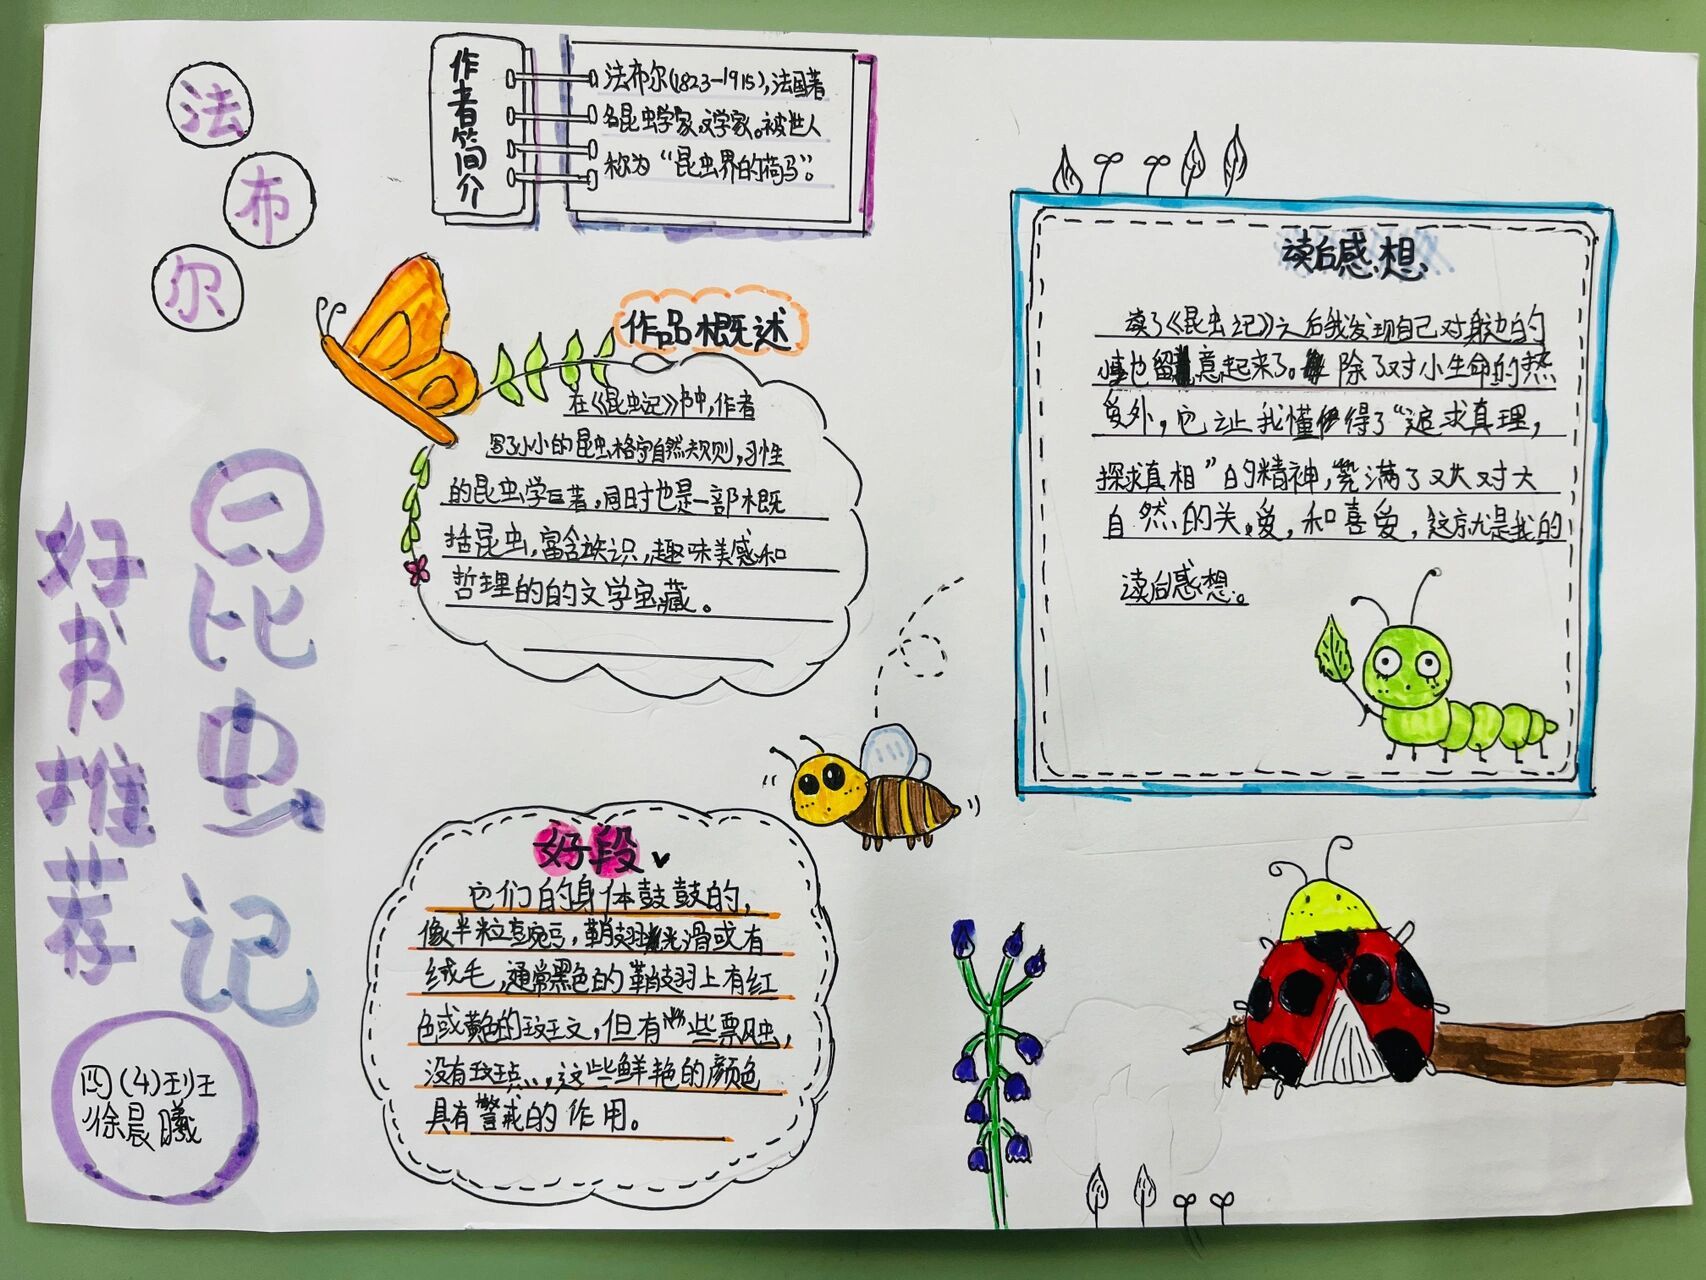 法布尔
昆虫记
好书推荐
四(4)班
徐晨曦
作者简介
法布尔(1823-1915),法国著
名昆虫学家,文学家。被世人
称为“昆虫界的荷马”。
作品概述
在《昆虫记》书中,作者
写了小小的昆虫,格守自然规则,习性
的昆虫学巨著,同时也是一部概
括昆虫,富含知识,趣味美感和
哲理的的文学宝藏。
好段
它们的身体鼓鼓的,
像半粒豌豆,鞘翅光滑或有
绒毛,通常黑色的鞘翅上有红
色或黄色的斑纹,但有些瓢虫,
没有斑点,,这些鲜艳的颜色
具有警戒的作用。
读后感想
读了《昆虫记》之后我发现自己对身边的
也留意起来了。除了对小生命的热
爱外,它让我懂得了“追求真理,
探求真相”的精神,充满了对大
自然的关爱,和喜爱,这就是我的
读后感想。